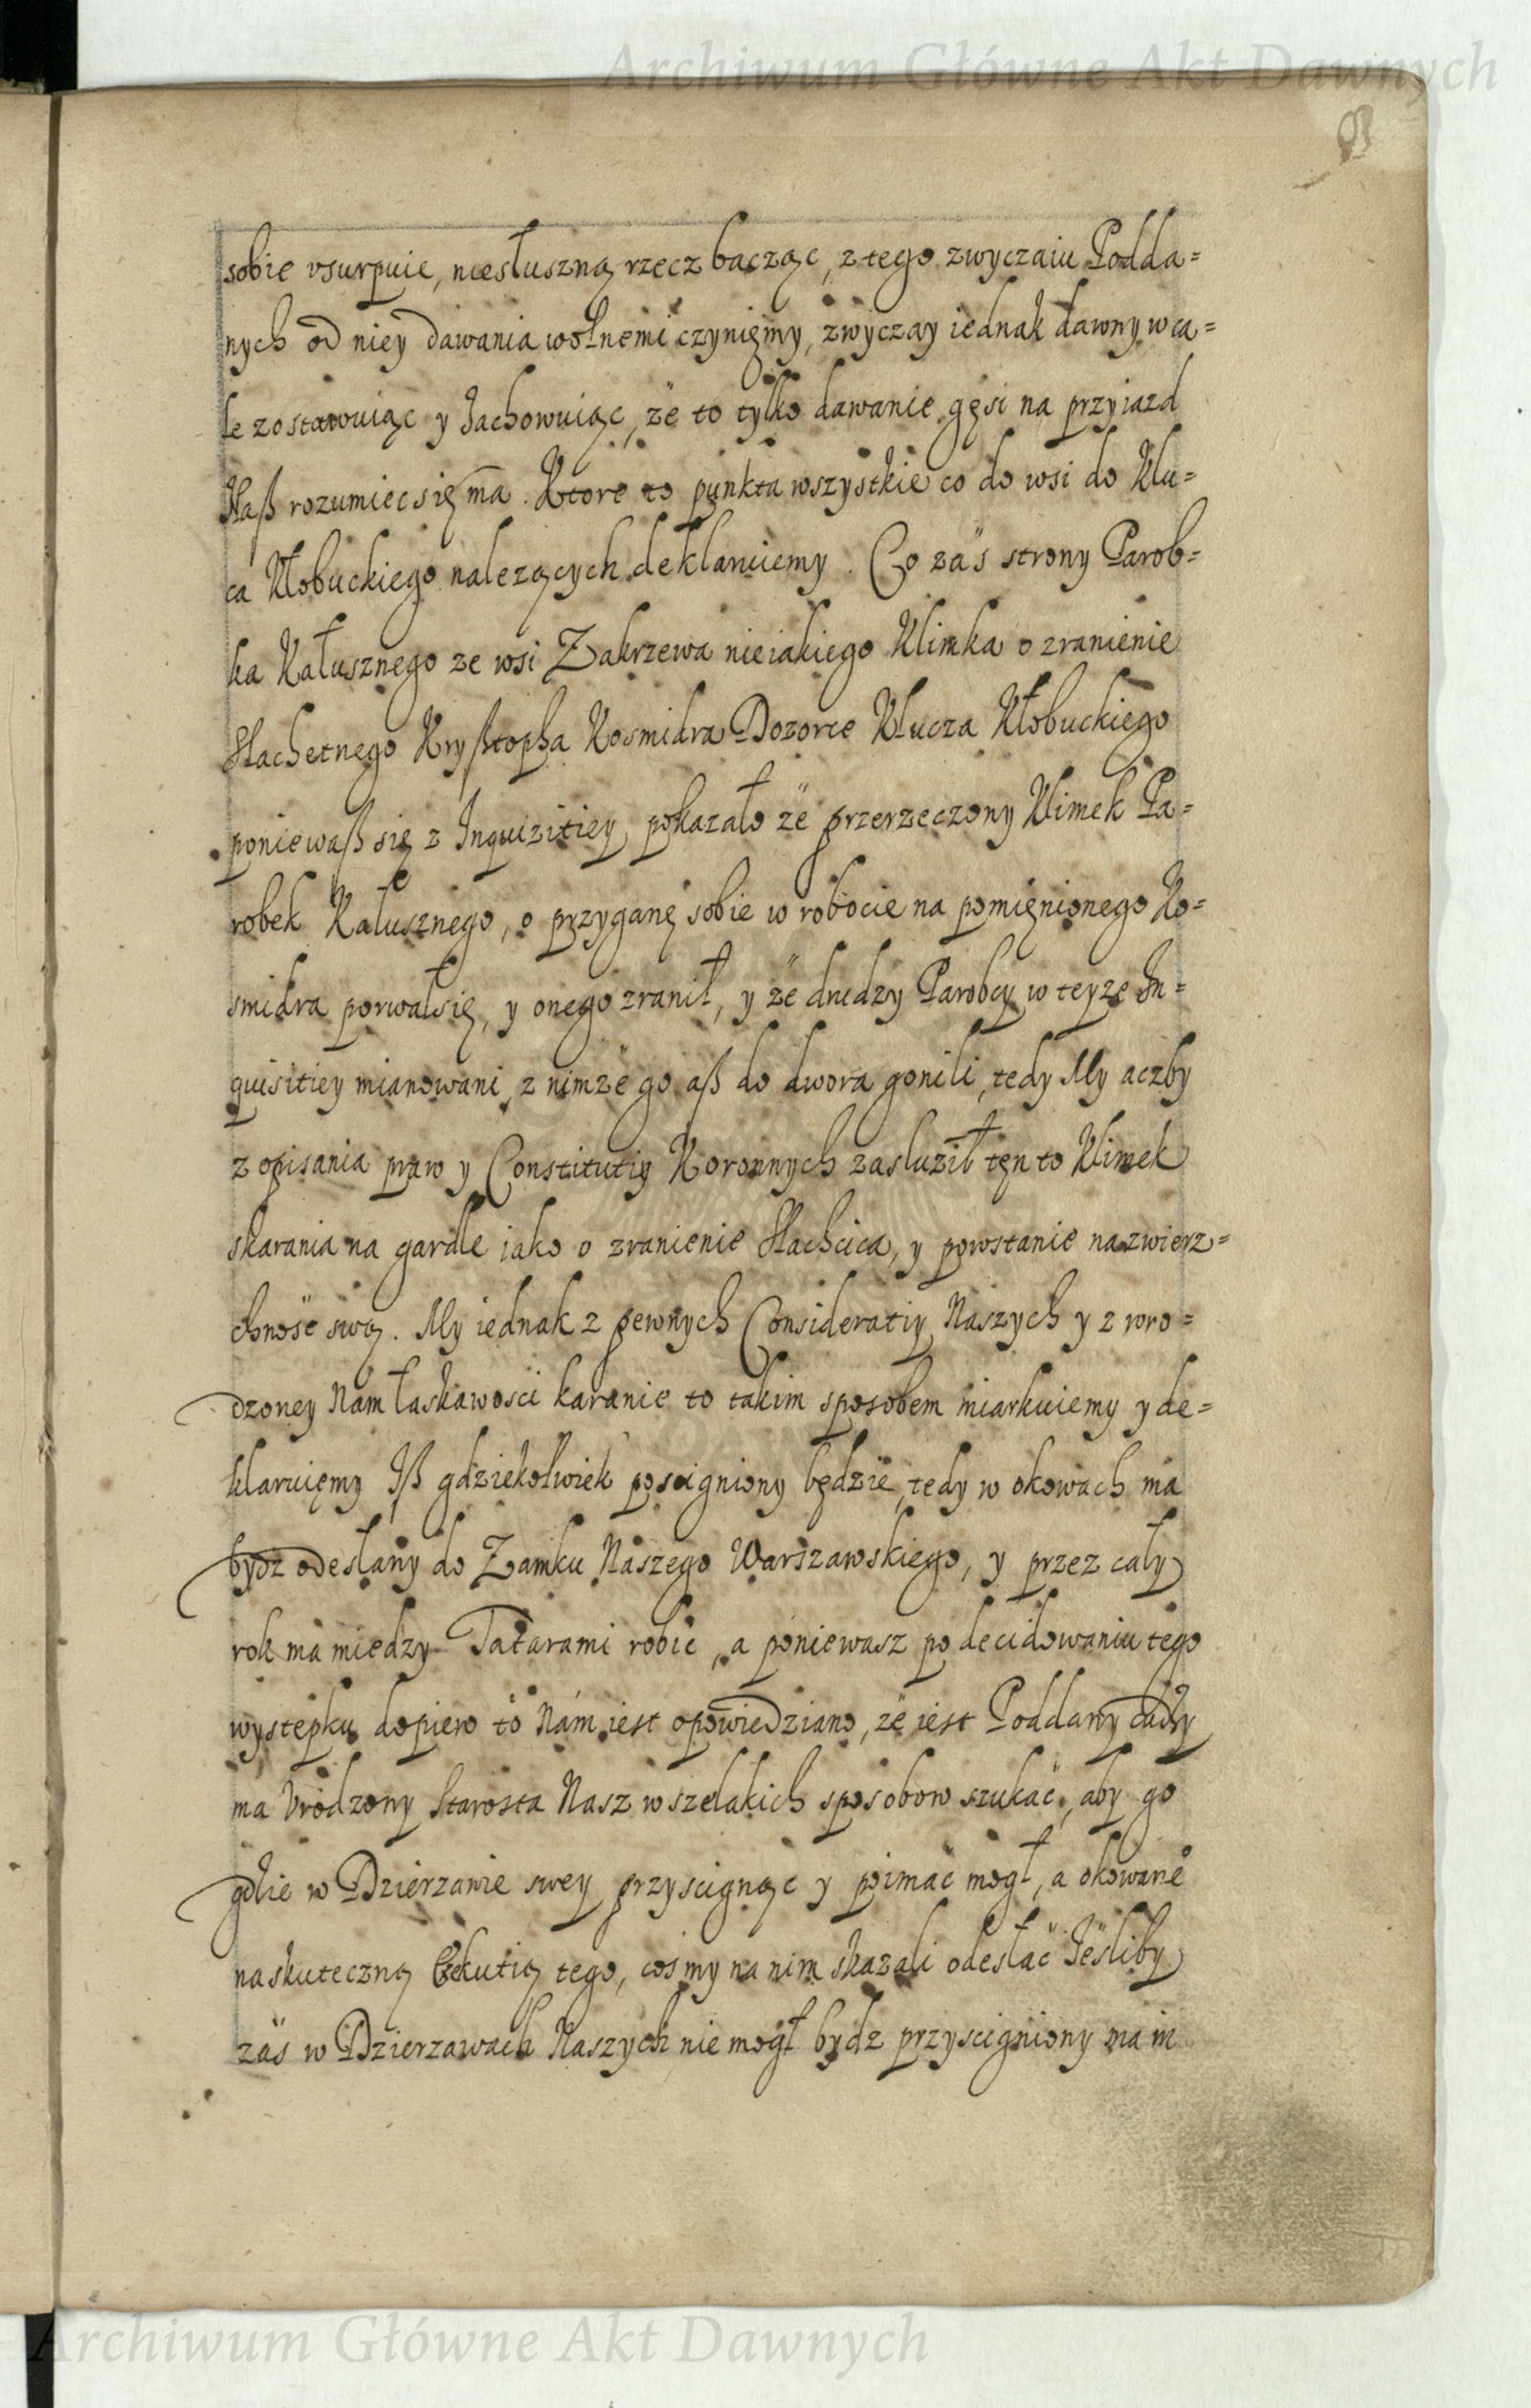 Archiwum Główne Akt Dawnych
sobie vsurpuie, niesłuszną rzecz bacząc, z tego zwyczaiu Podda=
nych od niey dawania wolnemi czyniemy, zwyczay iednak dawny w ca=
le zostawuiąc y zachowuiąc, że to tylko dawanie gęsi na przyiazd
Nasz rozumiec się ma. Ktore to punkta wszystkie co do wsi do Klu=
ca Kłobuckiego nalezących deklaruiemy. Co zaś strony Parob=
ka Kałusznego ze wsi Zakrzewa nieiakiego Klimka o zranienie
Slachetnego Kryßtopha Kosmidra Dozorce Klucza Kłobuckiego
poniewaß się z Inquizitiey pokazało że przerzeczony Klimek Pa=
robek Kałusznego, o przyganę sobie w robocie na pomienionego Ko=
smidra porwał się, y onego zranił, y że drudzy Parobcy w teyze In=
quisitiey mianowani z nimże go aß do dwora gonili, tedy My aczby
z opisania praw y Constitutiy Koronnych zasluził ten to Klimek
skarania na gardle iako o zranienie Slachcica, y powstanie na zwierz=
chność swą. My iednak z pewnych Consideratiy Naszych y z wro=
dzoney Nam łaskawosci karanie to takim sposobem miarkuiemy y de=
klaruięmy Iß gdziekolwiek poscigniony będzie, tedy w okowach ma
bydz odesłany do Zamku Naszego Warszawskiego, y przez cały
rok ma miedzy Tatarami robić, a poniewasz po decidowaniu tego
wystepku dopiero to Nam iest opowiedziano, że iest Poddany
ma Vrodzony Starosta Nasz wszelakich sposobow szukać, aby go
gdzie w Dzierzawie swey przyscignąc y poimać mogł, a okowane
na skuteczną Exekutią tego, cosmy na nim skazali odesłać Jesliby
zaś w Dzierzawach Naszych nie mogł bydz przyscigniony ma in
Archiwum Główne Akt Dawnych